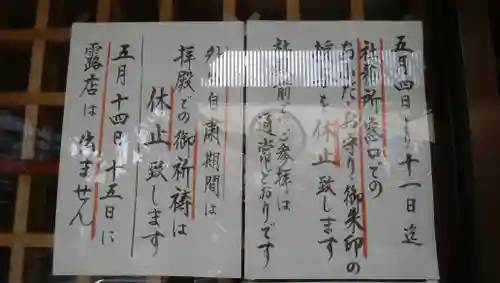 五月四日より十一日迄
社務所窓口での
おふだ・お守り・御朱印の
授与を休止致します
社殿前でのご参拝は
通常どおりです
外出自粛期間は
拝殿での御祈祷は
休止致します
五月十四日、十五日に
露店は出ません